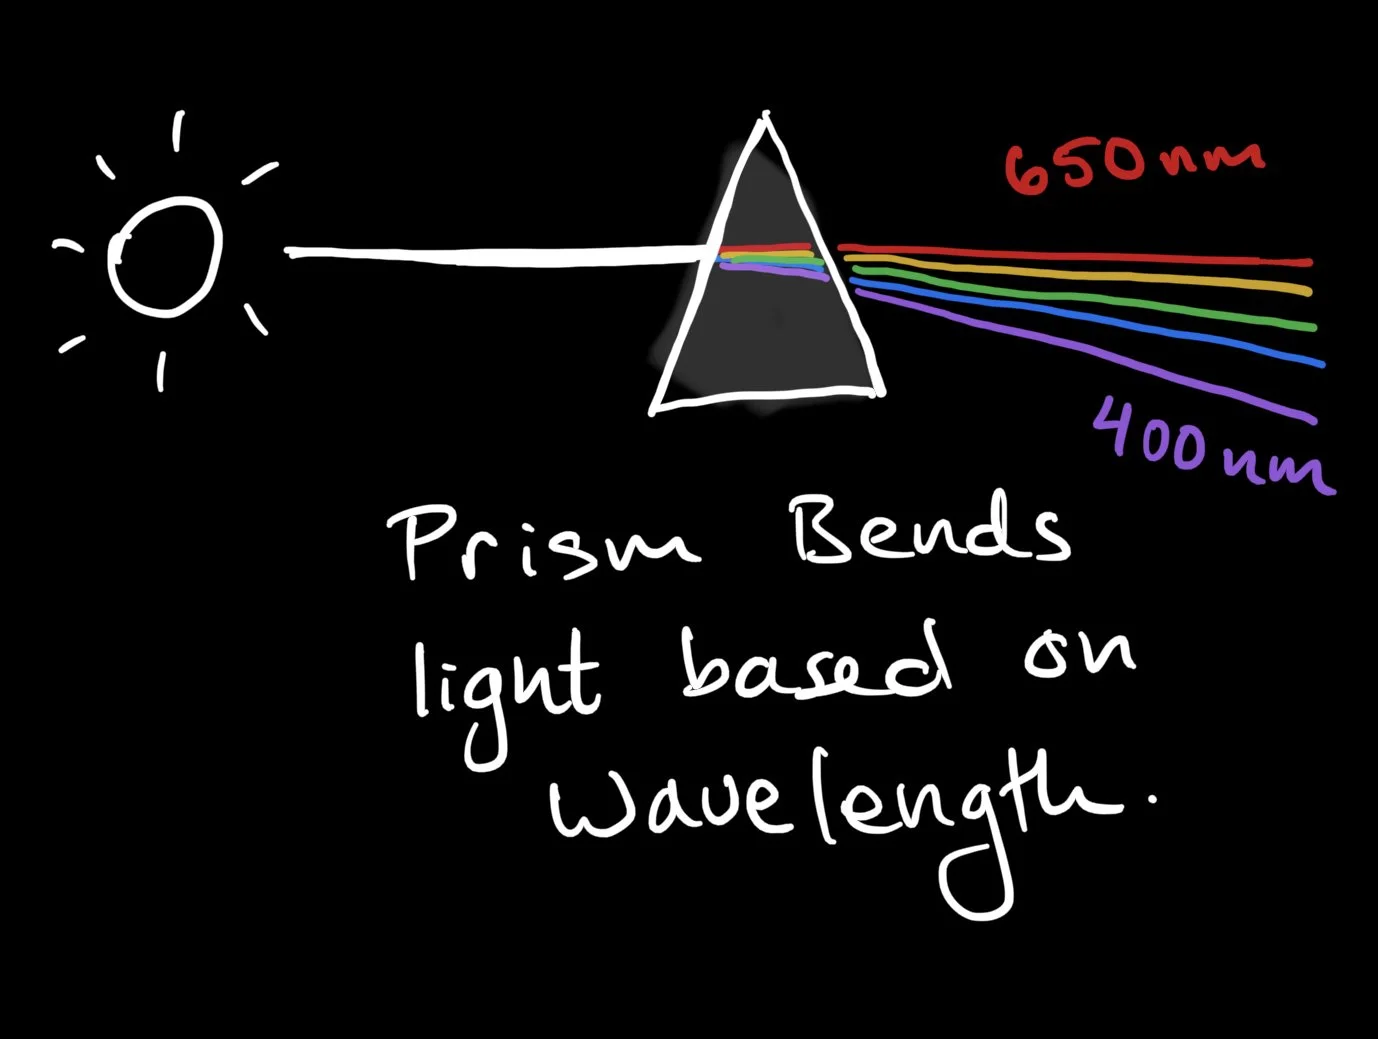 650nm
400nm
Prism Bends
light based on
wavelength.